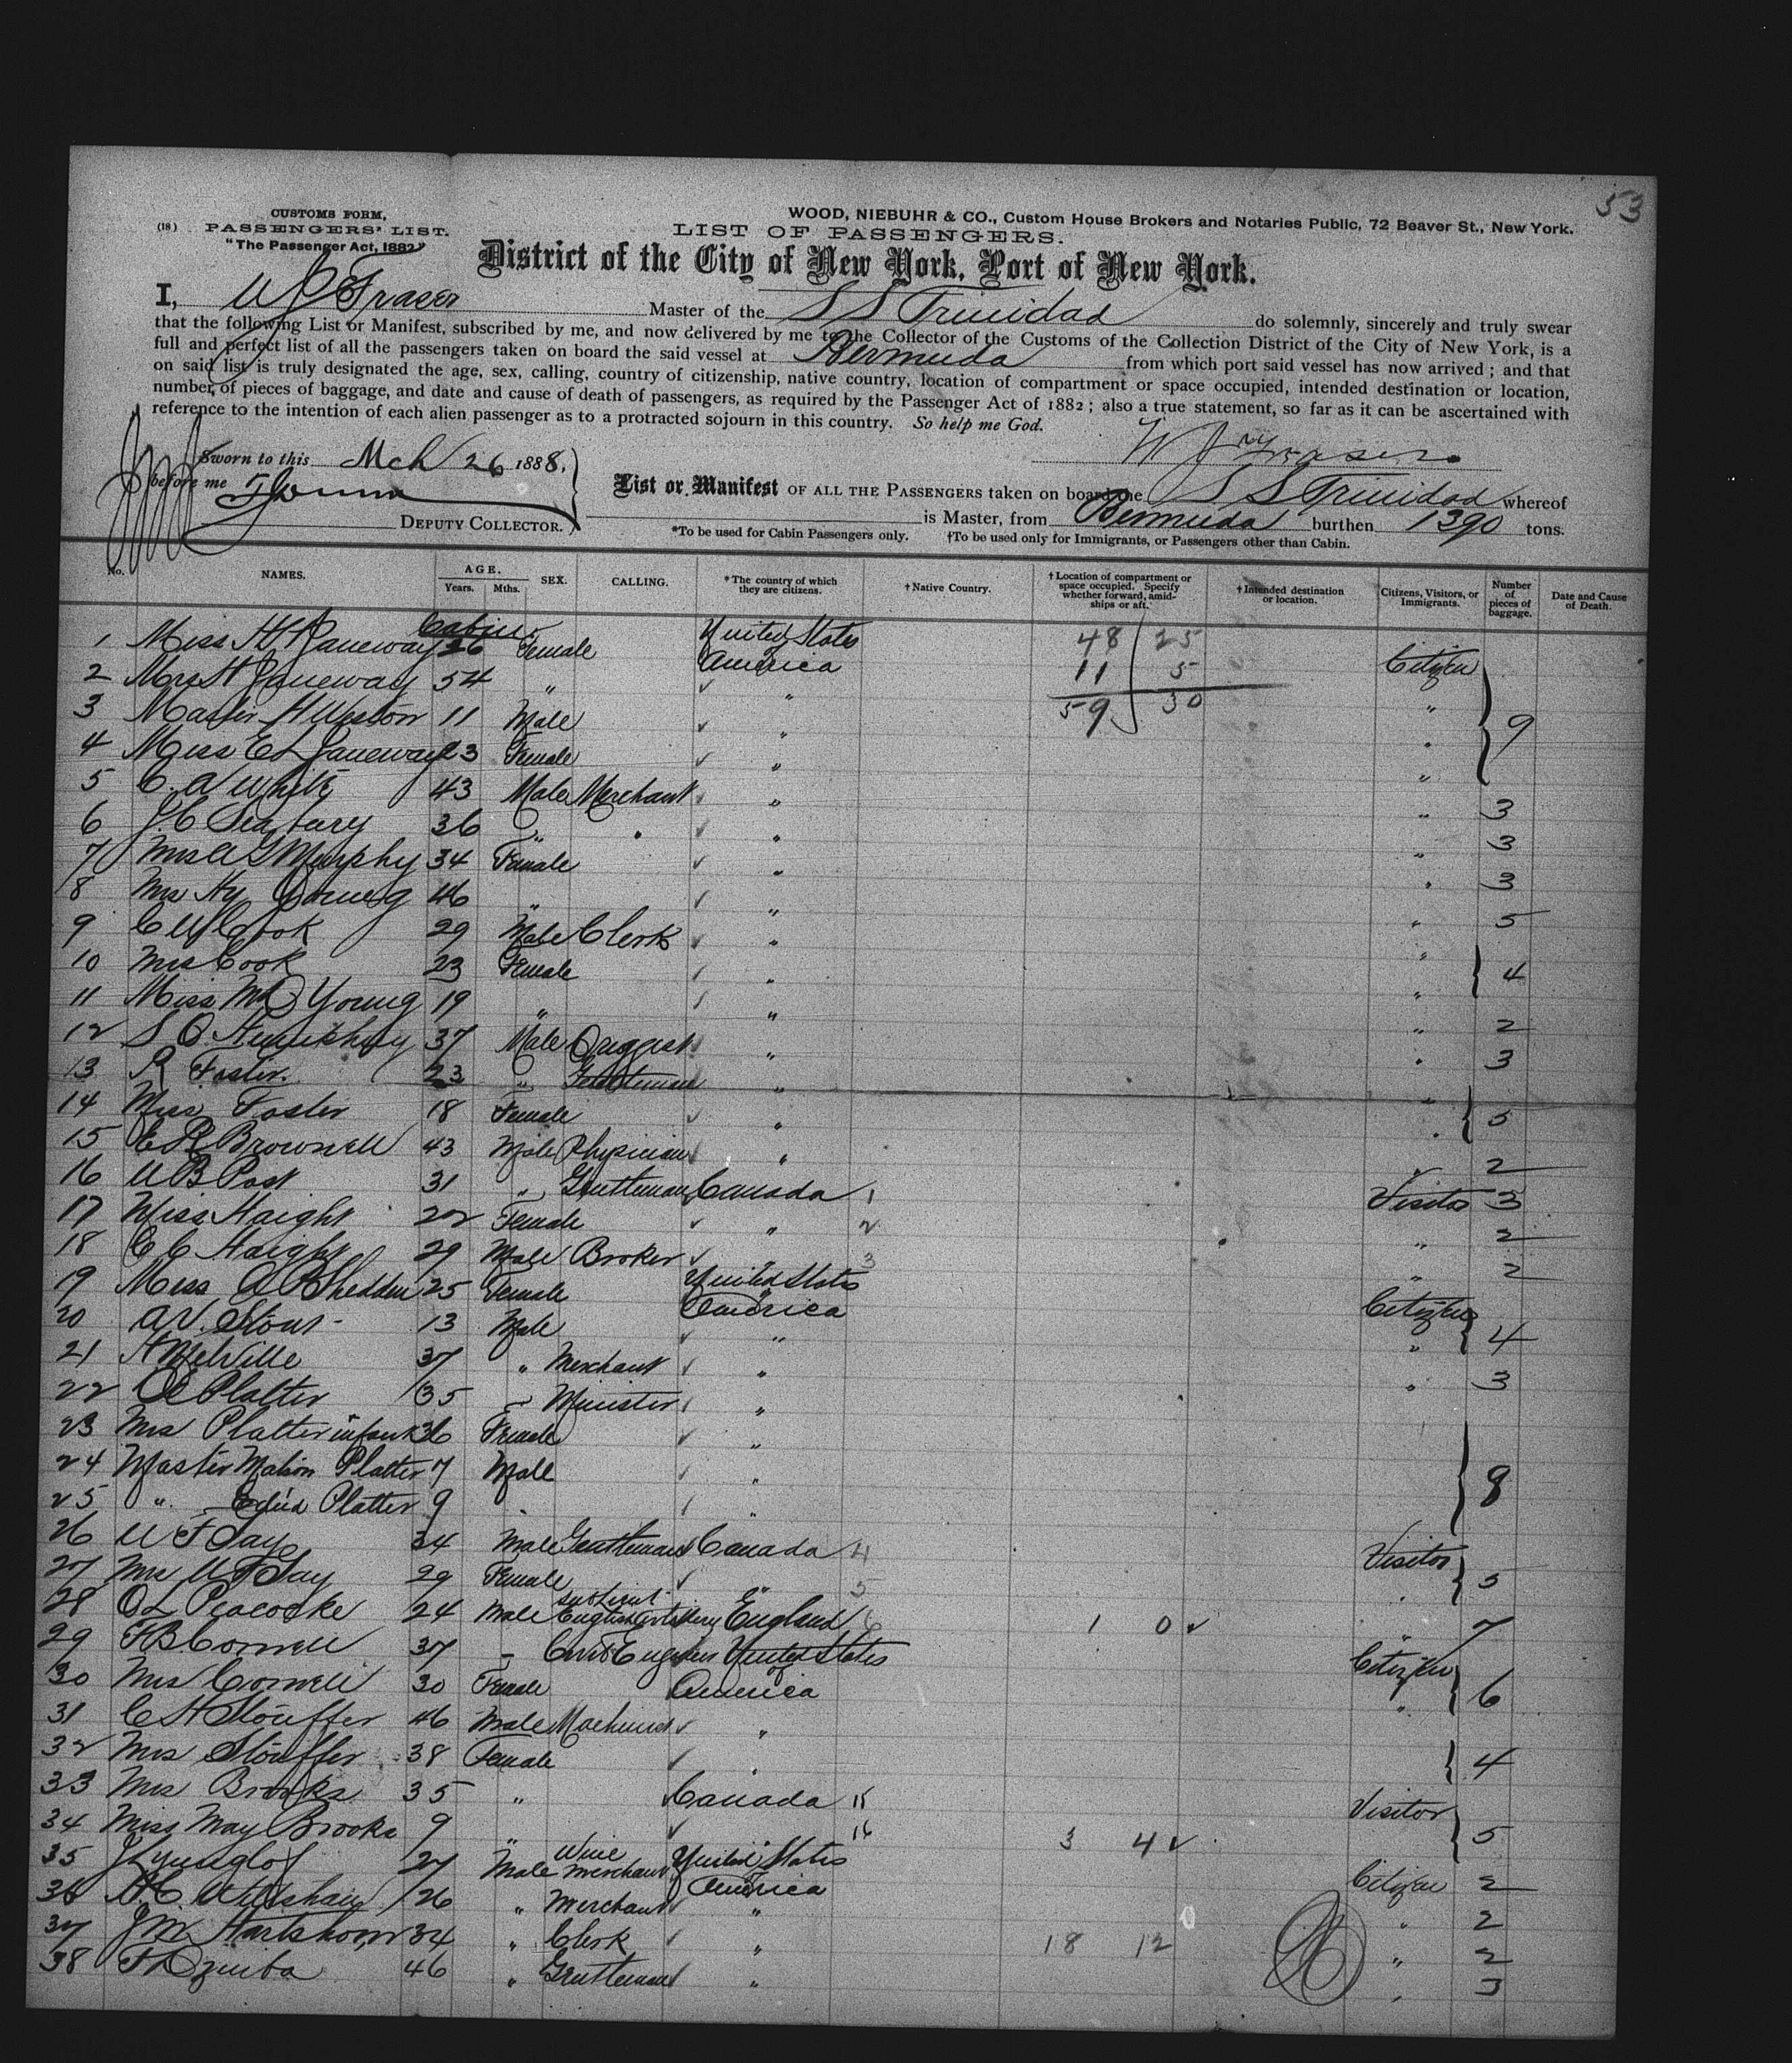 53
CUSTOMS FORM,
(18) PASSENGERS' LIST.
"The Passenger Act, 1882"
WOOD, NIEBUHR & CO., Custom House Brokers and Notaries Public, 72 Beaver St., New York.
LIST OF PASSENGERS.
District of the City of New York, Port of New York.
I, W J Fraser Master of the S S Trinidad do solemnly, sincerely and truly swear
that the following List or Manifest, subscribed by me, and now delivered by me to the Collector of the Customs of the Collection District of the City of New York, is a
full and perfect list of all the passengers taken on board the said vessel at Bermuda from which port said vessel has now arrived; and that
on said list is truly designated the age, sex, calling, country of citizenship, native country, location of compartment or space occupied, intended destination or location,
number of pieces of baggage, and date and cause of death of passengers, as required by the Passenger Act of 1882; also a true statement, so far as it can be ascertained with
reference to the intention of each alien passenger as to a protracted sojourn in this country. So help me God.
W J Fraser
Sworn to this Mch 26 1888,
before me
DEPUTY COLLECTOR.
List or Manifest OF ALL THE PASSENGERS taken on board the S S Trinidad whereof
is Master, from Bermuda burthen 1390 tons.
*To be used for Cabin Passengers only. †To be used only for Immigrants, or Passengers other than Cabin.
No. NAMES. AGE. Years. Mths. SEX. CALLING. *The country of which they are citizens. †Native Country. †Location of compartment or space occupied. Specify whether forward, amidships or aft. †Intended destination or location. Citizens, Visitors, or Immigrants. Number of pieces of baggage. Date and Cause of Death.
Cabin
1 Miss H Janeway 26 Female United States America 48 25 Citizen
2 Mrs H Janeway 54 " " 11 5 "
3 Master H Weston 11 Male " 59 30 " 9
4 Miss E L Janeway 23 Female " "
5 C. A White 43 Male Merchant " " 3
6 J C Seabury 36 " " " " 3
7 Mrs A G Murphy 34 Female " " 3
8 Mrs Hy Young 46 " " " 5
9 C W Cook 29 Male Clerk " "
10 Mrs Cook 23 Female " " 4
11 Miss M D Young 19 " " " 2
12 S O Humphrey 37 Male Druggist " " 3
13 R Foster 23 " Gentleman " "
14 Miss Foster 18 Female " " 5
15 E R Brownell 43 Male Physician " " 2
16 W B Post 31 " Gentleman Canada 1 Visitor 3
17 Miss Haight 22 Female " 2 " 2
18 C C Haight 29 Male Broker " 3 " 2
19 Miss A P Shedden 25 Female United States America Citizen
20 A V. Stout 13 Male " " 4
21 H Melville 37 " Merchant " " 3
22 Platter 35 " Minister "
23 Mrs Platter infant 36 Female "
24 Master Platter 7 Male " 8
25 " Platter 9 " "
26 W F Say 34 Male Gentleman Canada 4 Visitor
27 Mrs W F Say 29 Female " 5 " 5
28 O L Peacocke 24 Male Sub Lieut English Artillery England 6 1 0 " 7
29 F B Cornell 37 " Civil Engineer United States Citizen
30 Mrs Cornell 30 Female of America " 6
31 C H Stouffer 46 Male "
32 Mrs Stouffer 38 Female " 4
33 Mrs Brooks 35 " Canada Visitor
34 Miss May Brooks 9 " " 16 3 4 5
35 J 27 Male Wine merchant United States America Citizen 2
36 26 " Merchant " " 2
37 J M Hartshorn 34 " Clerk " 18 12 " 2
38 46 " Gentleman " " 3